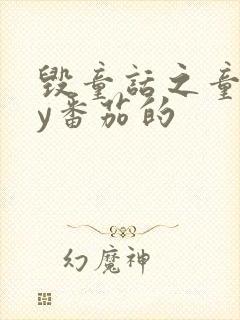 毁童话之童
y番茄的
幻魔神